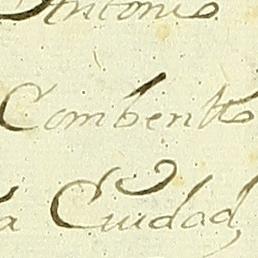 Antonio
Combentto
a Ciudad,